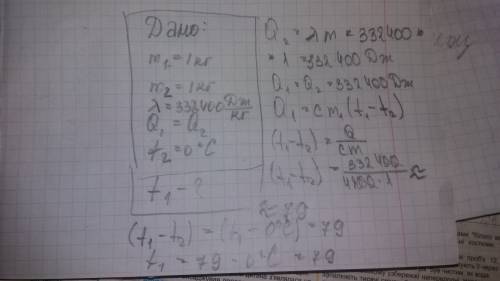 Дано:
m₁ = 1 кг
m₂ = 1 кг
λ = 332400 Дж/кг
Q₁ = Q₂
t₂ = 0°C
t₁ - ?
Q₂ = λm = 332400 ×
× 1 = 332400 Дж
Q₁ = Q₂ = 332400 Дж
Q₁ = cm₁(t₁-t₂)
(t₁-t₂) = Q/cm
(t₁-t₂) = 332400/4200·1 ≈
≈ 79
(t₁-t₂) = (t₁ - 0°C) = 79
t₁ = 79 - 0°C = 79